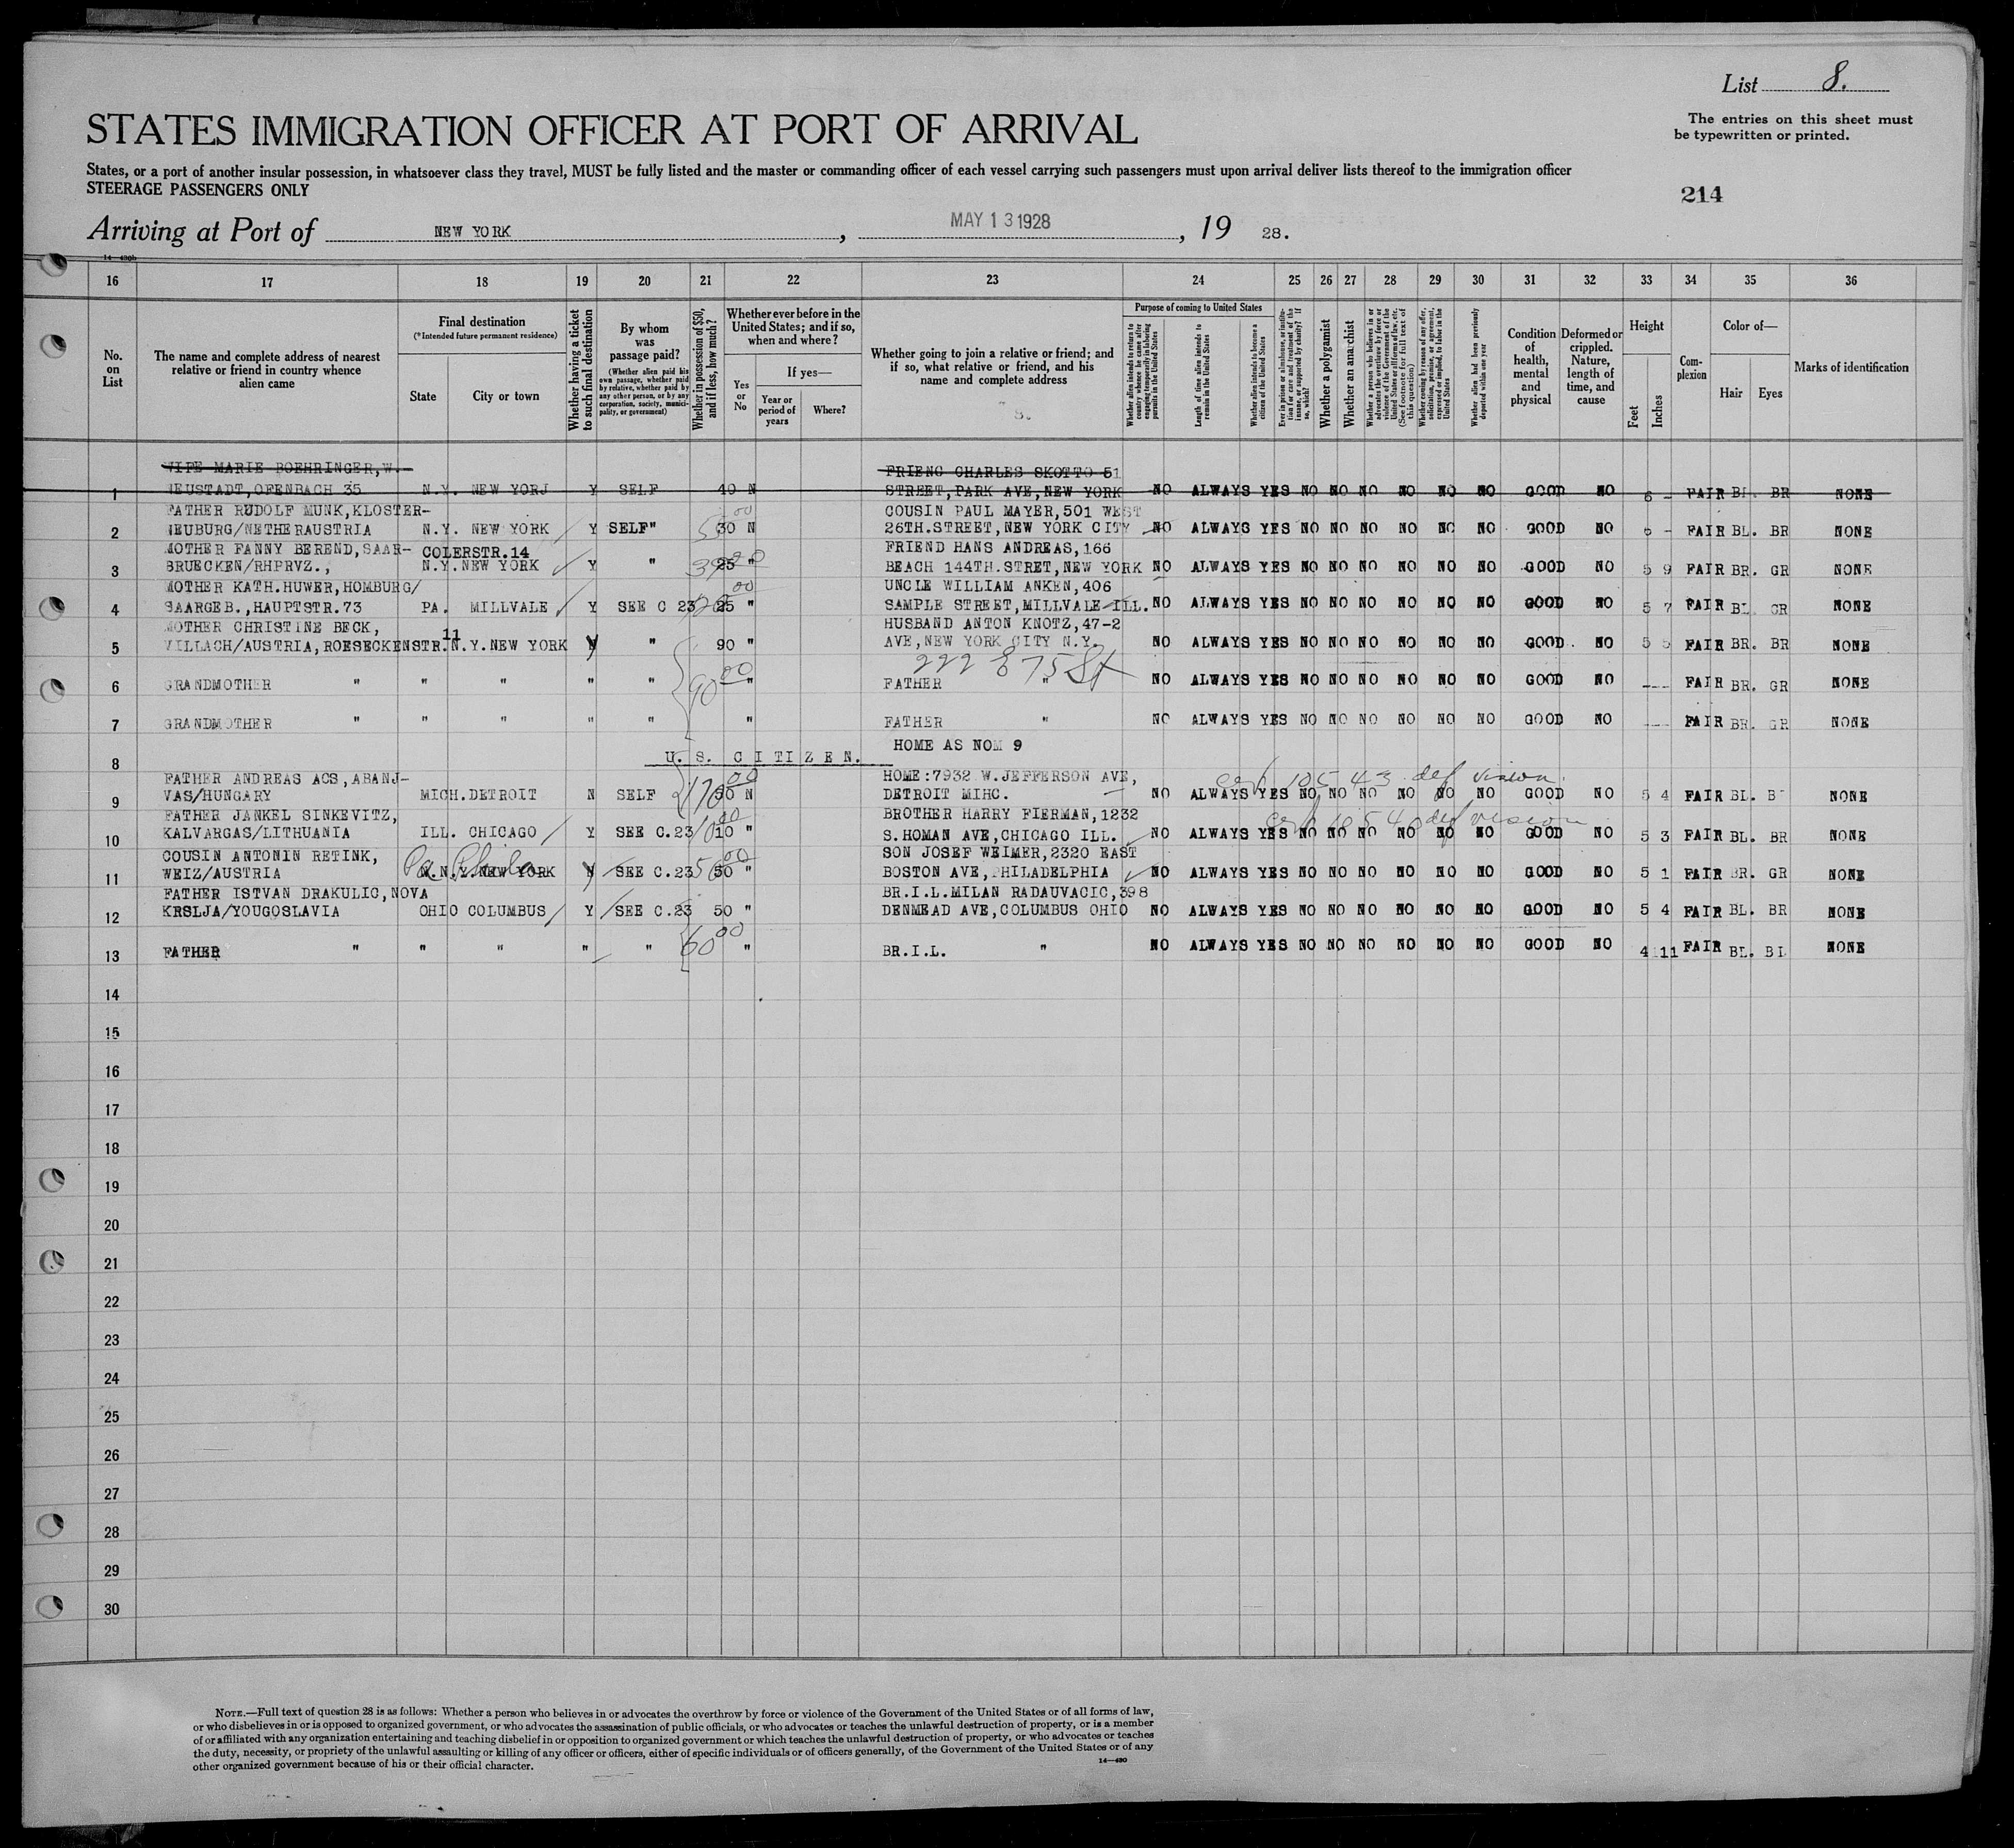 List 8.
The entries on this sheet must
be typewritten or printed.
STATES IMMIGRATION OFFICER AT PORT OF ARRIVAL
States, or a port of another insular possession, in whatsoever class they travel, MUST be fully listed and the master or commanding officer of each vessel carrying such passengers must upon arrival deliver lists thereof to the immigration officer
STEERAGE PASSENGERS ONLY
214
Arriving at Port of NEW YORK, MAY 13 1928, 19 28.
16 17 18 19 20 21 22 23 24 25 26 27 28 29 30 31 32 33 34 35 36
No. on List
The name and complete address of nearest relative or friend in country whence alien came
Final destination
(*Intended future permanent residence)
State
City or town
Whether having a ticket to such final destination
By whom was passage paid?
(Whether alien paid his own passage, whether paid by relative, whether paid by any other person, or by any corporation, society, municipality, or government)
Whether in possession of $50, and if less, how much?
Whether ever before in the United States; and if so, when and where?
Yes or No
If yes—
Year or period of years
Where?
Whether going to join a relative or friend; and if so, what relative or friend, and his name and complete address
Purpose of coming to United States
Whether alien intends to return to country whence he came after engaging temporarily in laboring pursuits in the United States
Length of time alien intends to remain in the United States
Whether alien intends to become a citizen of the United States
Ever in prison or almshouse, or institution for care and treatment of the insane, or supported by charity? If so, which?
Whether a polygamist
Whether an anarchist
Whether a person who believes in or advocates the overthrow by force or violence of the Government of the United States or all forms of law, etc. (See footnote for full text of this question)
Whether coming by reason of any offer, solicitation, promise, or agreement, expressed or implied, to labor in the United States
Whether alien had been previously deported within one year
Condition of health, mental and physical
Deformed or crippled. Nature, length of time, and cause
Height
Feet
Inches
Complexion
Color of—
Hair
Eyes
Marks of identification
WIFE MARIE BOEHRINGER,W.- FRIENC CHARLES SKOTTO 51
1 NEUSTADT,OFENBACH 35 N.Y. NEW YORJ Y SELF 40 N STREET,PARK AVE,NEW YORK NO ALWAYS YES NO NO NO NO NO NO GOOD NO 6 - FAIR BL. BR NONE
FATHER RUDOLF MUNK,KLOSTER- COUSIN PAUL MAYER,501 WEST
2 NEUBURG/NETHERAUSTRIA N.Y. NEW YORK Y SELF" 30 N 26TH.STREET,NEW YORK CITY NO ALWAYS YES NO NO NO NO NO NO GOOD NO 6 - FAIR BL. BR NONE
MOTHER FANNY BEREND,SAAR- COLERSTR.14 FRIEND HANS ANDREAS,166
3 BRUECKEN/RHPRVZ., N.Y.NEW YORK Y " 25 " BEACH 144TH.STRET,NEW YORK NO ALWAYS YES NO NO NO NO NO NO GOOD NO 5 9 FAIR BR. GR NONE
MOTHER KATH.HUWER,HOMBURG/ UNCLE WILLIAM ANKEN,406
4 SAARGEB.,HAUPTSTR.73 PA. MILLVALE Y SEE C 23 25 " SAMPLE STREET,MILLVALE ILL. NO ALWAYS YES NO NO NO NO NO NO GOOD NO 5 7 FAIR BL GR NONE
MOTHER CHRISTINE BECK, HUSBAND ANTON KNOTZ,47-2
5 VILLACH/AUSTRIA,ROESECKENSTR.11 N.Y.NEW YORK N " 90 " AVE,NEW YORK CITY N.Y. NO ALWAYS YES NO NO NO NO NO NO GOOD NO 5 5 FAIR BR. BR NONE
222 E 75 St
6 GRANDMOTHER " " " " " 90 00 " FATHER " NO ALWAYS YES NO NO NO NO NO NO GOOD NO --- FAIR BR. GR NONE
7 GRANDMOTHER " " " " " " FATHER " NO ALWAYS YES NO NO NO NO NO NO GOOD NO --- FAIR BR. GR NONE
8 U. S. CITIZEN. HOME AS NOM 9
FATHER ANDREAS ACS,ABANJ- HOME:7932 W.JEFFERSON AVE, cert 10543 def vision
9 VAS/HUNGARY MICH.DETROIT N SELF 170 00 N DETROIT MIHC. NO ALWAYS YES NO NO NO NO NO NO GOOD NO 5 4 FAIR BL. NONE
FATHER JANKEL SINKEVITZ, BROTHER HARRY FIERMAN,1232 cert 10540 def vision
10 KALVARGAS/LITHUANIA ILL. CHICAGO Y SEE C.23 10 " S.HOMAN AVE,CHICAGO ILL. NO ALWAYS YES NO NO NO NO NO NO GOOD NO 5 3 FAIR BL. BR NONE
COUSIN ANTONIN RETINK, Pa Phila SON JOSEF WEIMER,2320 EAST
11 WEIZ/AUSTRIA N.Y. NEW YORK N SEE C.23 50 " BOSTON AVE,PHILADELPHIA NO ALWAYS YES NO NO NO NO NO NO GOOD NO 5 1 FAIR BR. GR NONE
FATHER ISTVAN DRAKULIC,NOVA BR.I.L.MILAN RADAUVACIC,398
12 KRSLJA/YOUGOSLAVIA OHIO COLUMBUS Y SEE C.23 50 " DENMEAD AVE,COLUMBUS OHIO NO ALWAYS YES NO NO NO NO NO NO GOOD NO 5 4 FAIR BL. BR NONE
13 FATHER " " " " " 60 00 " BR.I.L. " NO ALWAYS YES NO NO NO NO NO NO GOOD NO 4 11 FAIR BL. BL NONE
14
15
16
17
18
19
20
21
22
23
24
25
26
27
28
29
30
NOTE.—Full text of question 28 is as follows: Whether a person who believes in or advocates the overthrow by force or violence of the Government of the United States or of all forms of law,
or who disbelieves in or is opposed to organized government, or who advocates the assassination of public officials, or who advocates or teaches the unlawful destruction of property, or is a member
of or affiliated with any organization entertaining and teaching disbelief in or opposition to organized government or which teaches the unlawful destruction of property, or who advocates or teaches
the duty, necessity, or propriety of the unlawful assaulting or killing of any officer or officers, either of specific individuals or of officers generally, of the Government of the United States or of any
other organized government because of his or their official character.
14—430